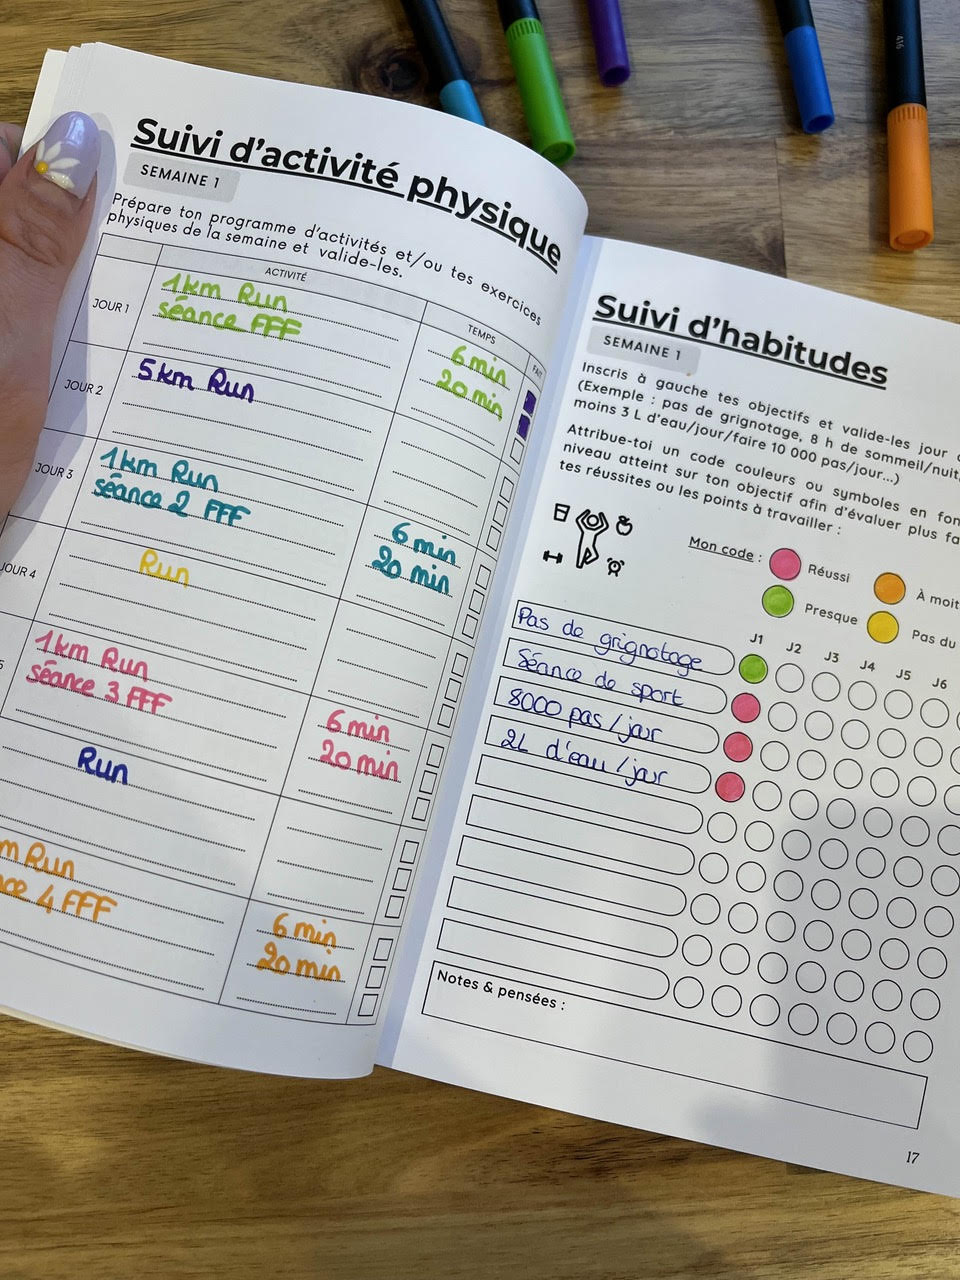 Suivi d'activité physique
SEMAINE 1
Prépare ton programme d'activités et/ou tes exercices
physiques de la semaine et valide-les.
ACTIVITÉ
TEMPS
FAIT
JOUR 1
1km Run
6 min
séance FFF
20 min
JOUR 2
5km Run
JOUR 3
1km Run
6 min
séance 2 FFF
20 min
JOUR 4
Run
5
1km Run
6 min
séance 3 FFF
20 min
Run
m Run
6 min
nce 4 FFF
20 min
Suivi d'habitudes
SEMAINE 1
Inscris à gauche tes objectifs et valide-les jour
(Exemple : pas de grignotage, 8 h de sommeil/nuit,
moins 3 L d'eau/jour/faire 10 000 pas/jour...)
Attribue-toi un code couleurs ou symboles en fon
niveau atteint sur ton objectif afin d'évaluer plus fa
tes réussites ou les points à travailler :
Mon code :
Réussi
À moit
Presque
Pas du
J1 J2 J3 J4 J5 J6
Pas de grignotage
Séance de sport
8000 pas/jour
2L d'eau/jour
Notes & pensées :
17
416